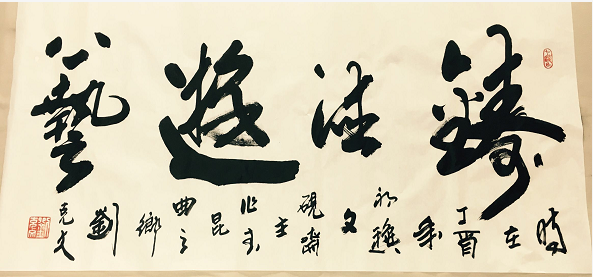 鑄遊藝
時在丁酉年文硯齋主作於昆曲之鄉劉克文